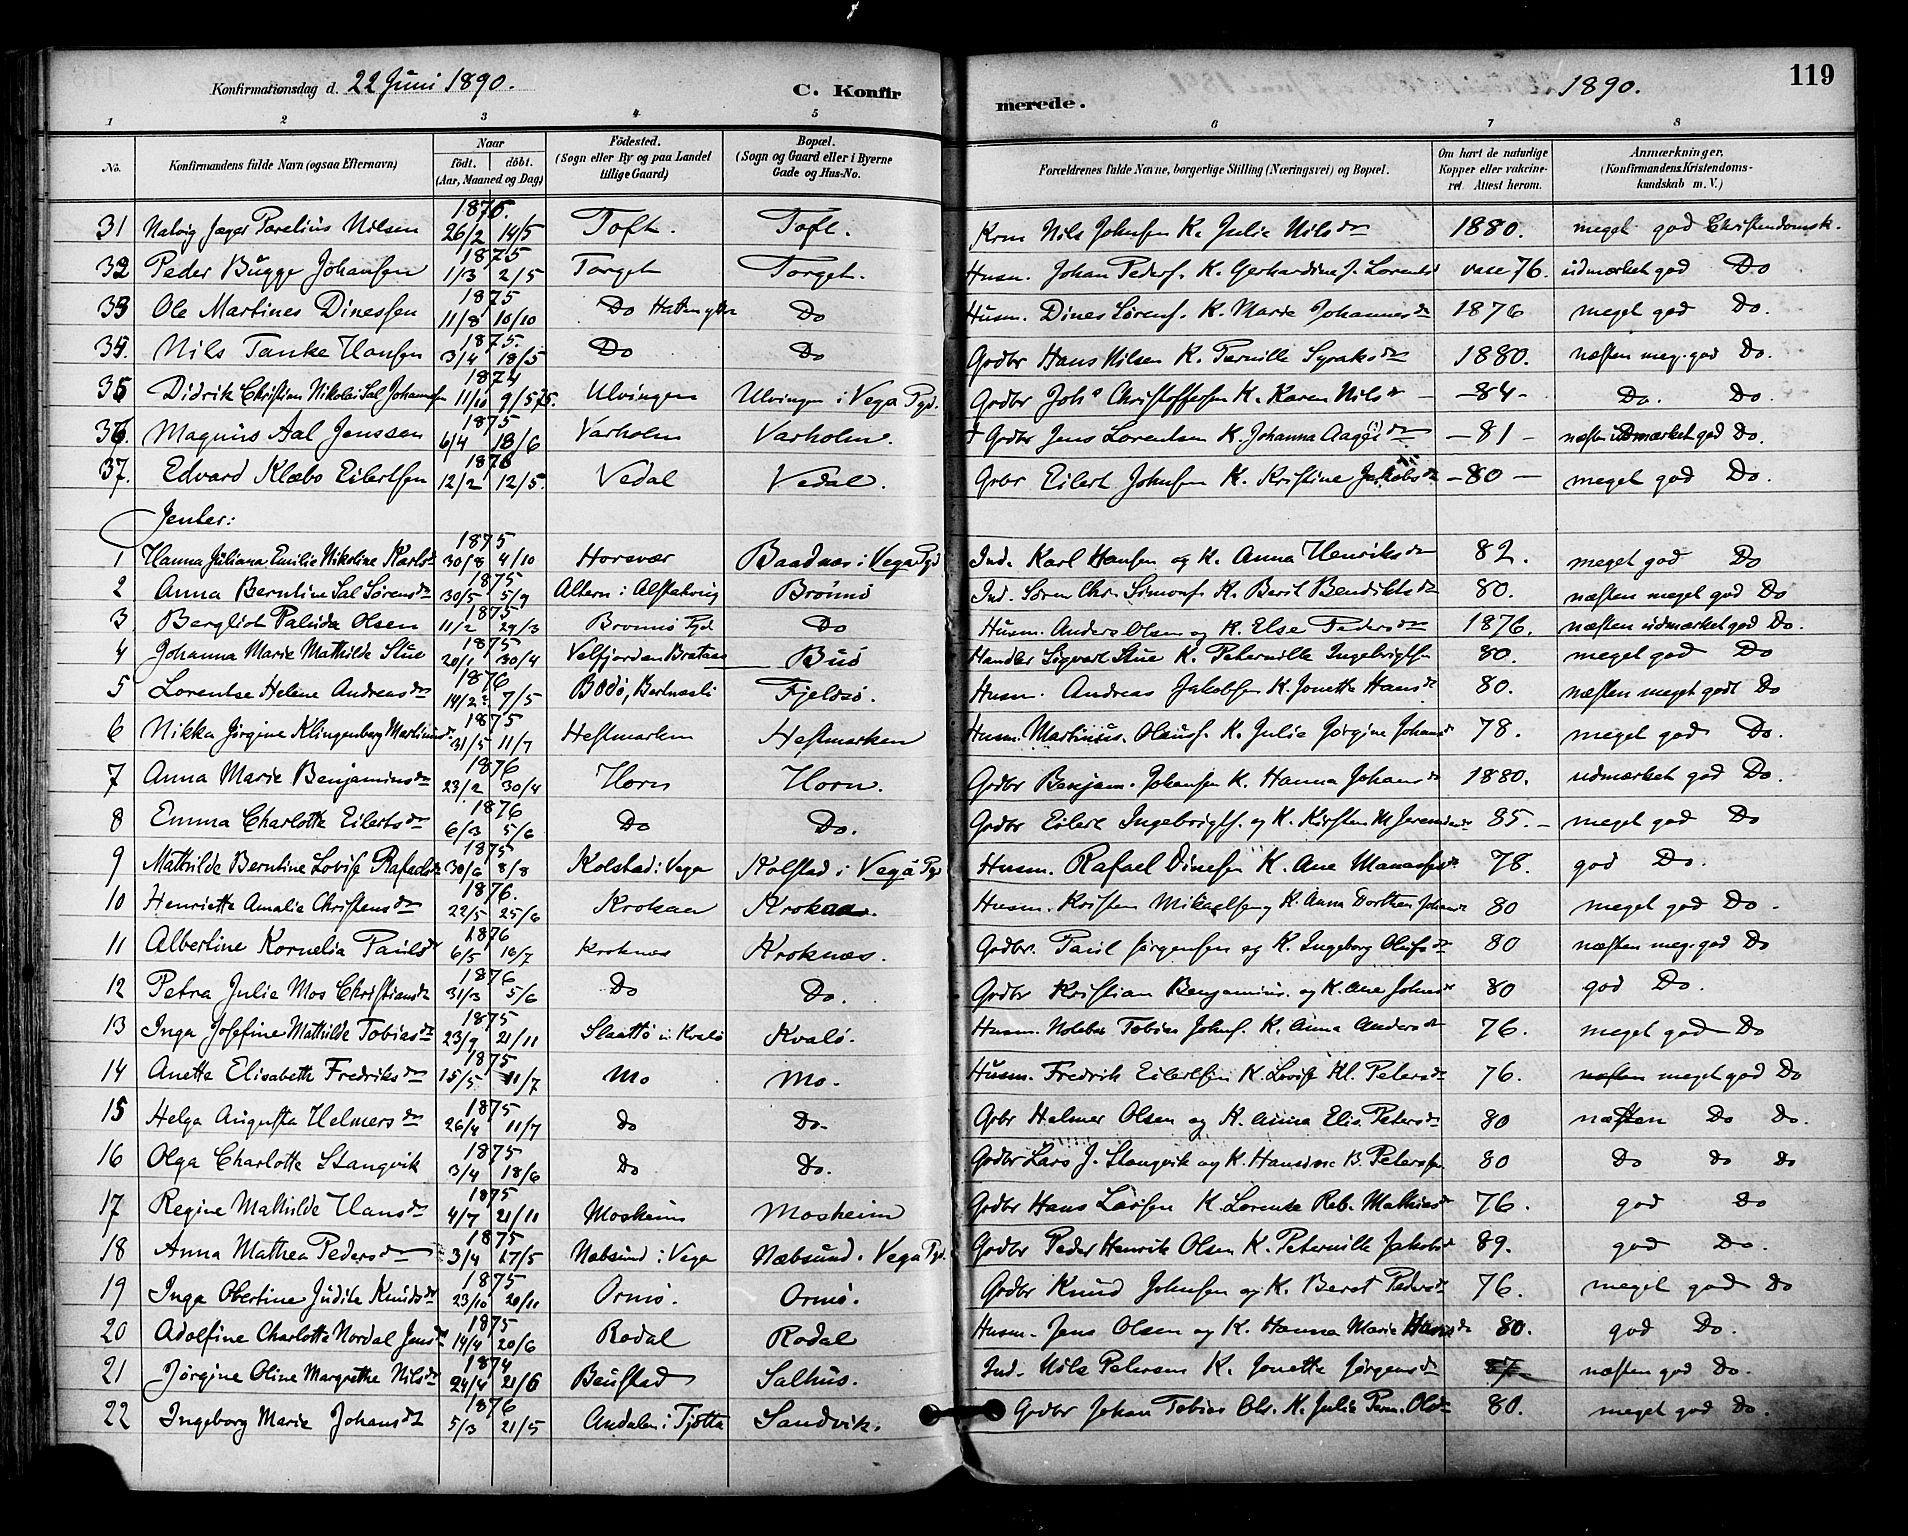 Konfirmationsdag d. 22 Juni 1890. C. Konfir
merede. 1890. 119
1 2 3 4 5 6 7 8
No. Konfirmandens fulde Navn (ogsaa Efternavn) Naar födt. döbt. (Aar, Maaned og Dag) Födested. (Sogn eller By og paa Landet tillige Gaard) Bopæl. (Sogn og Gaard eller i Byerne Gade og Hus-No. Forældrenes fulde Navne, borgerlige Stilling (Næringsvei) og Bopæl. Om havt de naturlige Kopper eller vakcineret. Attest herom. Anmærkninger. (Konfirmandens Kristendomskundskab m. V.)
31 Natvig Jæger Parelius Nilsen 1875. 26/2 14/5 Toft. Toft. Krm Nils Johnsen K. Julie Nilsdr 1880. meget god Christendomsk.
32 Peder Bugge Johansen 1875 1/3 2/5 Torget Torget. Husm. Johan Peders. K. Gerhardine J. Lorentsd vacc 76. udmærket god Do
33 Ole Martines Dinessen 1875 11/8 10/10 Do Do Husm. Dines Sørens. K. Marie Johannesdr 1876 meget god Do.
34. Nils Tanke Hansen 1875. 3/4 18/5 Do Do Grdbr Hans Nilsen K. Pernille Syraksdr 1880. næsten meg. god Do.
35 Didrik Christian Nikolai Sal Johansen 1874 11/10 9/5 75. Ulvingen Ulvingen i Vega Pgd. Grdbr Joh. Christoffersen K. Karen Nilsdr - 84 - Do. Do.
36 Magnus Aal Jenssen 1875 6/4 18/6 Varholm Varholm. Grdbr Jens Lorentsen K. Johanna Aagesdr - 81 - næsten udmærket god Do.
37. Edvard Klæbo Eilertsen 1876 12/2 12/5. Vedal Vedal. Grbr Eilert Johnsen K. Kristine Jakobsdr - 80 - meget god Do.
Jenter:
1 Hanna Juliana Emilie Nikoline Karlsdr 1875 30/8 4/10 Horsvær Baadnæs i Vega Pgd Ind. Karl Hansen og K. Anna Henriksdr 82. meget god Do
2 Anna Berntine Sal Sørensdr 1875 30/5 5/9 Altern i Alstahoug Brønnø Ind. Søren Chr. Simons. K. Berit Bendiktsdr 80. næsten meget god Do
3 Bergliot Paluda Olsen 1875 11/2 29/3 Brønnø Pgd Do Husm. Anders Olsen og K. Else Pedersdr 1876. næsten udmærket god Do.
4 Johanna Marie Mathilde Stue 1875 20/1 30/4 Velfjorden Brataas Buø Handler Sigvart Stue K. Peternille Ingebrigtsn 80. meget god Do
5 Lorentse Helene Andreasdr 1876 14/2 7/5 Bodø, Bertnæsli Fjeldsø. Husm. Andreas Jakobsen K. Jonetta Hansdr 80. næsten meget godt Do
6 Nikka Jørgine Klingenberg Martinusdr. 1875 31/5 11/7 Hestmarken Hestmarken Husm. Martinus. Olaus. K. Julie Jørgine Johansd 78. meget god Do.
7 Anna Marie Benjaminsdr 1876 23/2 30/4 Horn Horn. Grdbr Benjam. Johansen K. Hanna Johansdr 1880. udmærket god Do.
8 Emma Charlotte Eilertsdr 1876 6/3 5/6 Do Do. Grdbr Eilert Ingebrigts. og K. Kirsten M. Jeremiasdr 85. - meget god Do
9 Mathilde Berntine Lovise Rafaelsdr 1875 30/6 8/8 Kolstad i Vega Kolstad i Vega Pgd Husm. Rafael Dinesen K. Ane Manassesdr 78. god Do.
10 Henriette Amalie Christensdr 1876. 22/5 25/6 Krokaa Krokaa. Husm. Kristen Mikaelsen og K. Anna Dorthea Johansdr 80 meget god Do.
11 Albertine Kornelia Paulsdr 1876 6/5 16/7 Kroknes Kroknæs. Grdbr. Paul Jørgensen og K. Ingeborg Olufsdr 80 næsten meg. god Do
12 Petra Julie Mos Christiansdr 1876 31/3 5/6 Do Do. Grdbr Kristian Benjamins. og K. Ane Johnsdr 80 god Do.
13 Inga Josefine Mathilde Tobiasdr 1875 23/9 21/11 Slaattø i Kvalø Kvalø. Husm. Tobias Johns. K. Anna Andersdr 76. meget god Do
14 Anette Elisabeth Fredriksdr 1875 15/5 11/7 Mo Mo. Husm. Fredrik Eilertsen K. Lovise Kl. Petersdr 76. næsten meget god Do
15 Helga Augusta Helmersdr 1875 26/4 11/7 Do Do. Grbr Helmer Olsen og K. Anna Elis. Petersdr 80 næsten Do Do.
16 Olga Charlotte Stangvik 1875 3/4 18/6 Do Do. Grdbr Lars J. Stangvik og K. Hansine B. Petersen 80 Do Do Do
17 Regine Mathilde Hansdr 1875 4/7 21/11 Mosheim Mosheim Grdbr Hans Larsen K. Lorense Reb. Mathiasdr 76. god Do
18 Anna Mathea Pedersdr 1875 3/4 17/5 Næbsund i Vega Næbsund i Vega Pgd. Grdbr Peder Henrik Olsen K. Peternille Jakobsd 89. god Do.
19 Inga Obertine Judith Knudsdr 1875 23/10 20/11 Ormø. Ormø. Grdbr Knud Johnsen og K. Beret Pedersdr 76. meget god Do
20 Adolfine Charlotte Nordal Jensdr 1875 14/4 20/6 Rodal Rodal Husm. Jens Olsen og K. Hanna Marie Hansdr 80. god Do.
21 Jørgine Oline Margrethe Nilsdr 1874 24/4 21/6 Beustad Salhus. Ind. Nils Petersen K. Jonetta Jørgensdr 87. næsten god Do.
22 Ingeborg Marie Johansdr 1876 5/3 21/5 Andalen i Tjøtta Sandvik. Grdbr Johan Tobias Ols. K. Julie Pern. Olsdr 80. meget god Do.